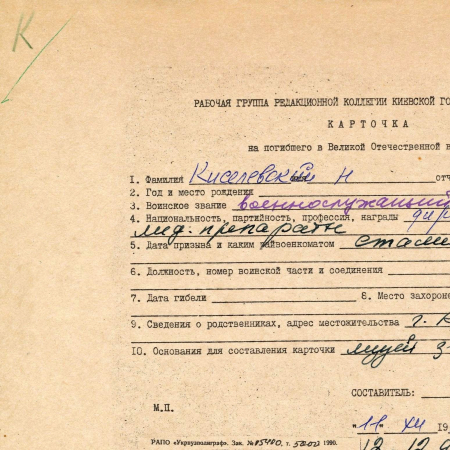 К
РАБОЧАЯ ГРУППА РЕДАКЦИОННОЙ КОЛЛЕГИИ КИЕВСКОЙ ГО
КАРТОЧКА
на погибшего в Великой Отечественной в
1. Фамилия Киселевский Н отч
2. Год и место рождения
3. Воинское звание военнослужащий
4. Национальность, партийность, профессия, награды
мед. препараты
5. Дата призыва и каким райвоенкоматом стали
6. Должность, номер воинской части и соединения
7. Дата гибели 8. Место захороне
9. Сведения о родственниках, адрес местожительства г. К
10. Основания для составления карточки музей з-
СОСТАВИТЕЛЬ:
М.П.
"11" XII 19
РАПО «Укрвузполиграф». Зак. № 05400, г. 50000 1990.
12.12.9